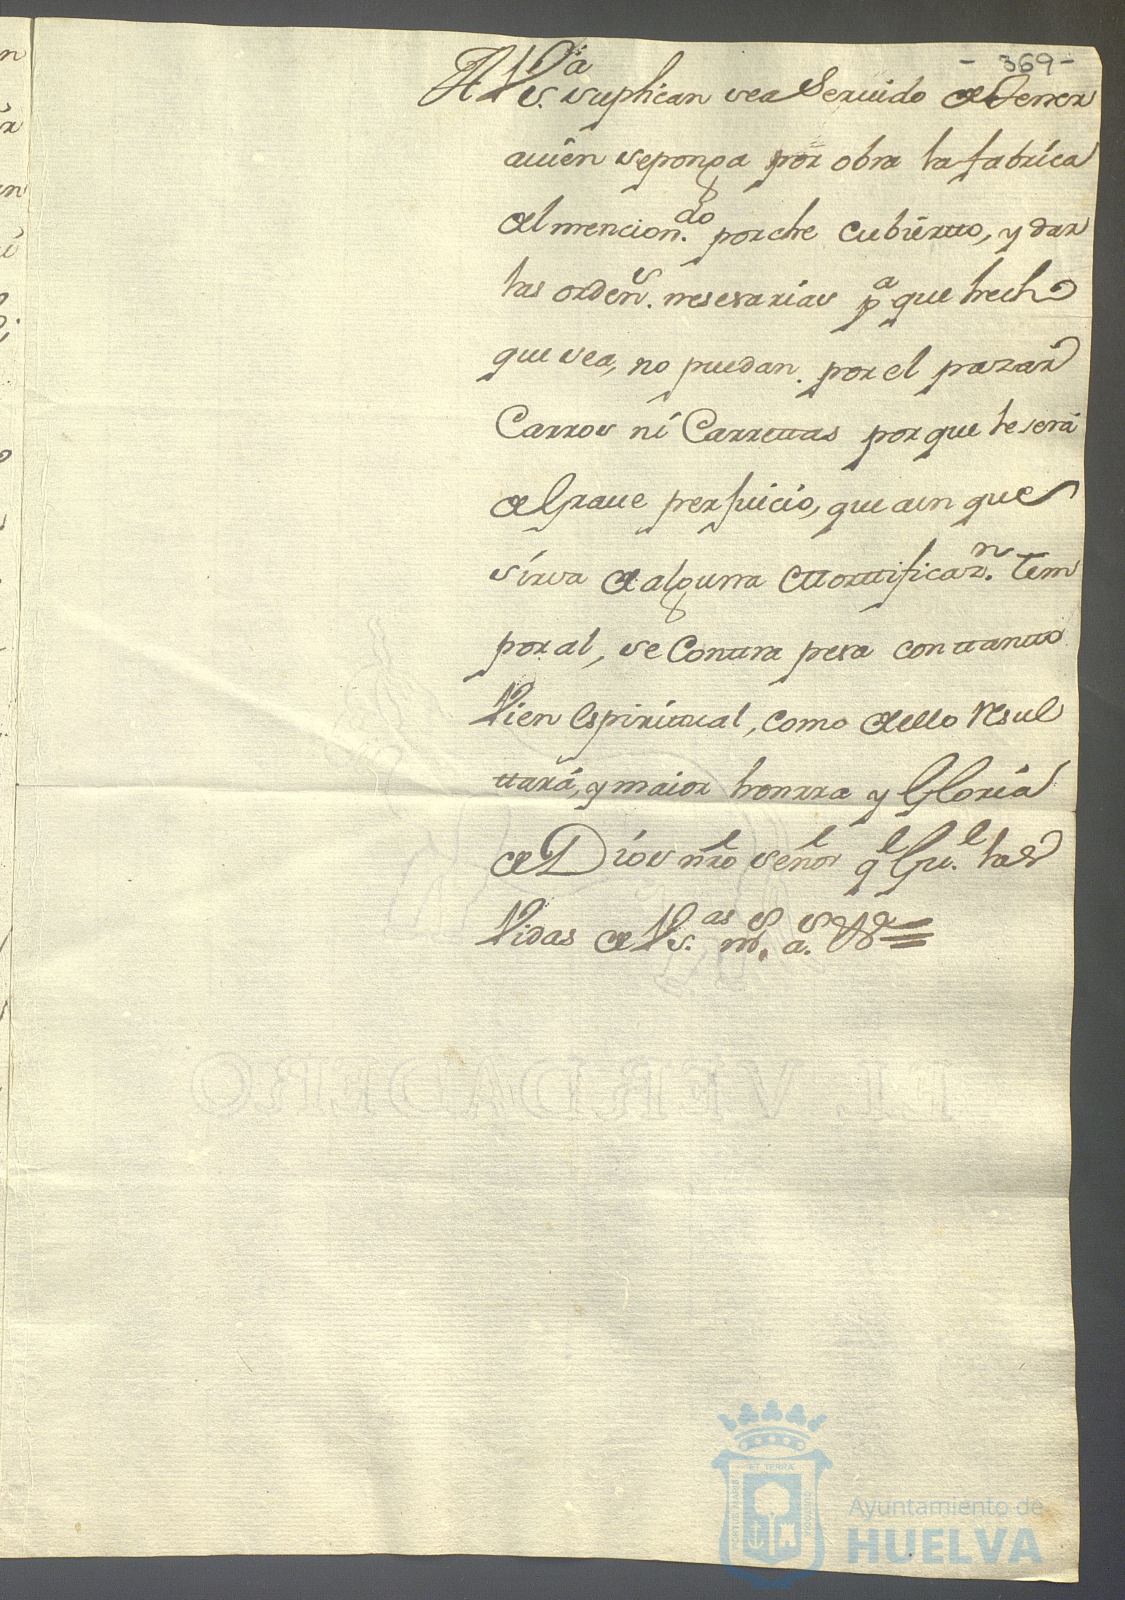 - 369 -
A V.ª S. suplican sea Seruido de tener
auien seponga por obra la fabrica
del mencion.do porche Cubiertto, y dar
las orden.s nesesarias p.a que hecho
que sea, no puedan por el pazar
Carros ni Carrettas por que le será
de Graue perjuicio, que aun que
sirva de alguna Mortificaz.n tem
poral, se Conttra pesa con ttantto
Vien Espirittual, como dello Resul
ttará, y maior honrra y Gloria
de Dios nro señor q Gu.e las
Vidas de V.as S. m.s a.s
EL VERDADERO
Ayuntamiento de
HUELVA